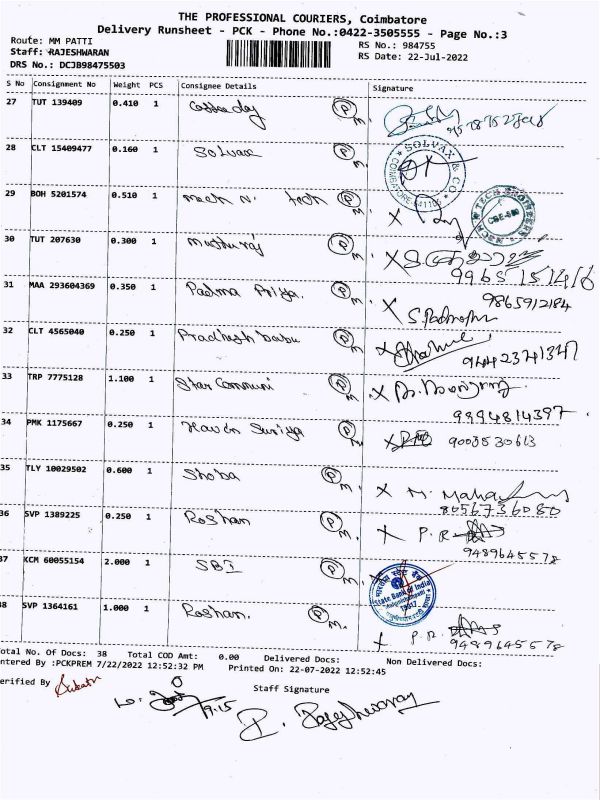 THE PROFESSIONAL COURIERS, Coimbatore
Delivery Runsheet - PCK - Phone No.:0422-3505555 - Page No.:3
Route: MM PATTI
RS No.: 984755
Staff: RAJESHWARAN
RS Date: 22-Jul-2022
DRS No.: DCJB98475503
S No Consignment No Weight PCS Consignee Details Signature
27 TUT 139409 0.410 1 P M.
28 CLT 15409477 0.160 1 Solvax P M.
SOLVAX & CO COIMBATORE-641105
29 BOH 5201574 0.510 1 Mech N. tech P M.
TECH ENGINEERS
30 TUT 207630 0.300 1 Muthuraj P M.
9965151416
31 MAA 293604369 0.350 1 Padma Priya. P M. 9865912184
32 CLT 4565040 0.250 1 Pradhesh babu P M. 94423741347
33 TRP 7775128 1.100 1 Star Communi P M.
9994814397
34 PMK 1175667 0.250 1 Haven Suriya P M. 9003530613
35 TLY 10029502 0.600 1 Shoba P M. M.
8056736080
36 SVP 1389225 0.250 1 Roshan P M. P. R
9489645578
37 KCM 60055154 2.000 1 SBI P M.
भारतीय स्टेट बैंक
State Bank of India
38 SVP 1364161 1.000 1 Roshan. P M. P. R
9489645578
Total No. Of Docs: 38 Total COD Amt: 0.00 Delivered Docs: Non Delivered Docs:
Entered By :PCKPREM 7/22/2022 12:52:32 PM Printed On: 22-07-2022 12:52:45
Verified By
Staff Signature
9.15
P. Rajeshwaran